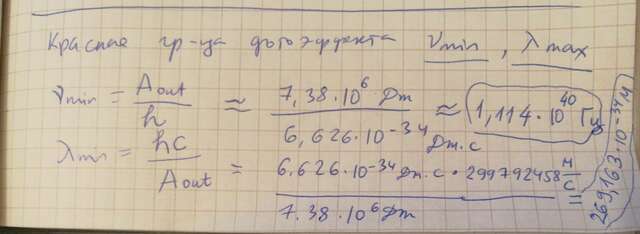 Красная гр-ца фотоэффекта νmin, λmax
νmin = Aout/h ≈ 7,38·10⁶ Дж / 6,626·10⁻³⁴ Дж·с ≈ 1,114·10⁴⁰ Гц
λmin = hc/Aout = 6.626·10⁻³⁴ Дж·с · 299792458 м/с / 7.38·10⁶ Дж = 269,163·10⁻³⁴ м